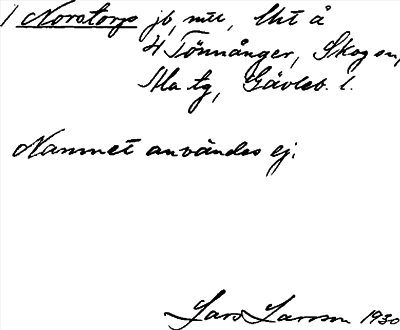 1 Noratorp jb, mtl, Uht å
4 Tönnånger, Skog sn,
Ala tg, Gävleb. l.
Namnet användes ej.
Lars Larsson 1930